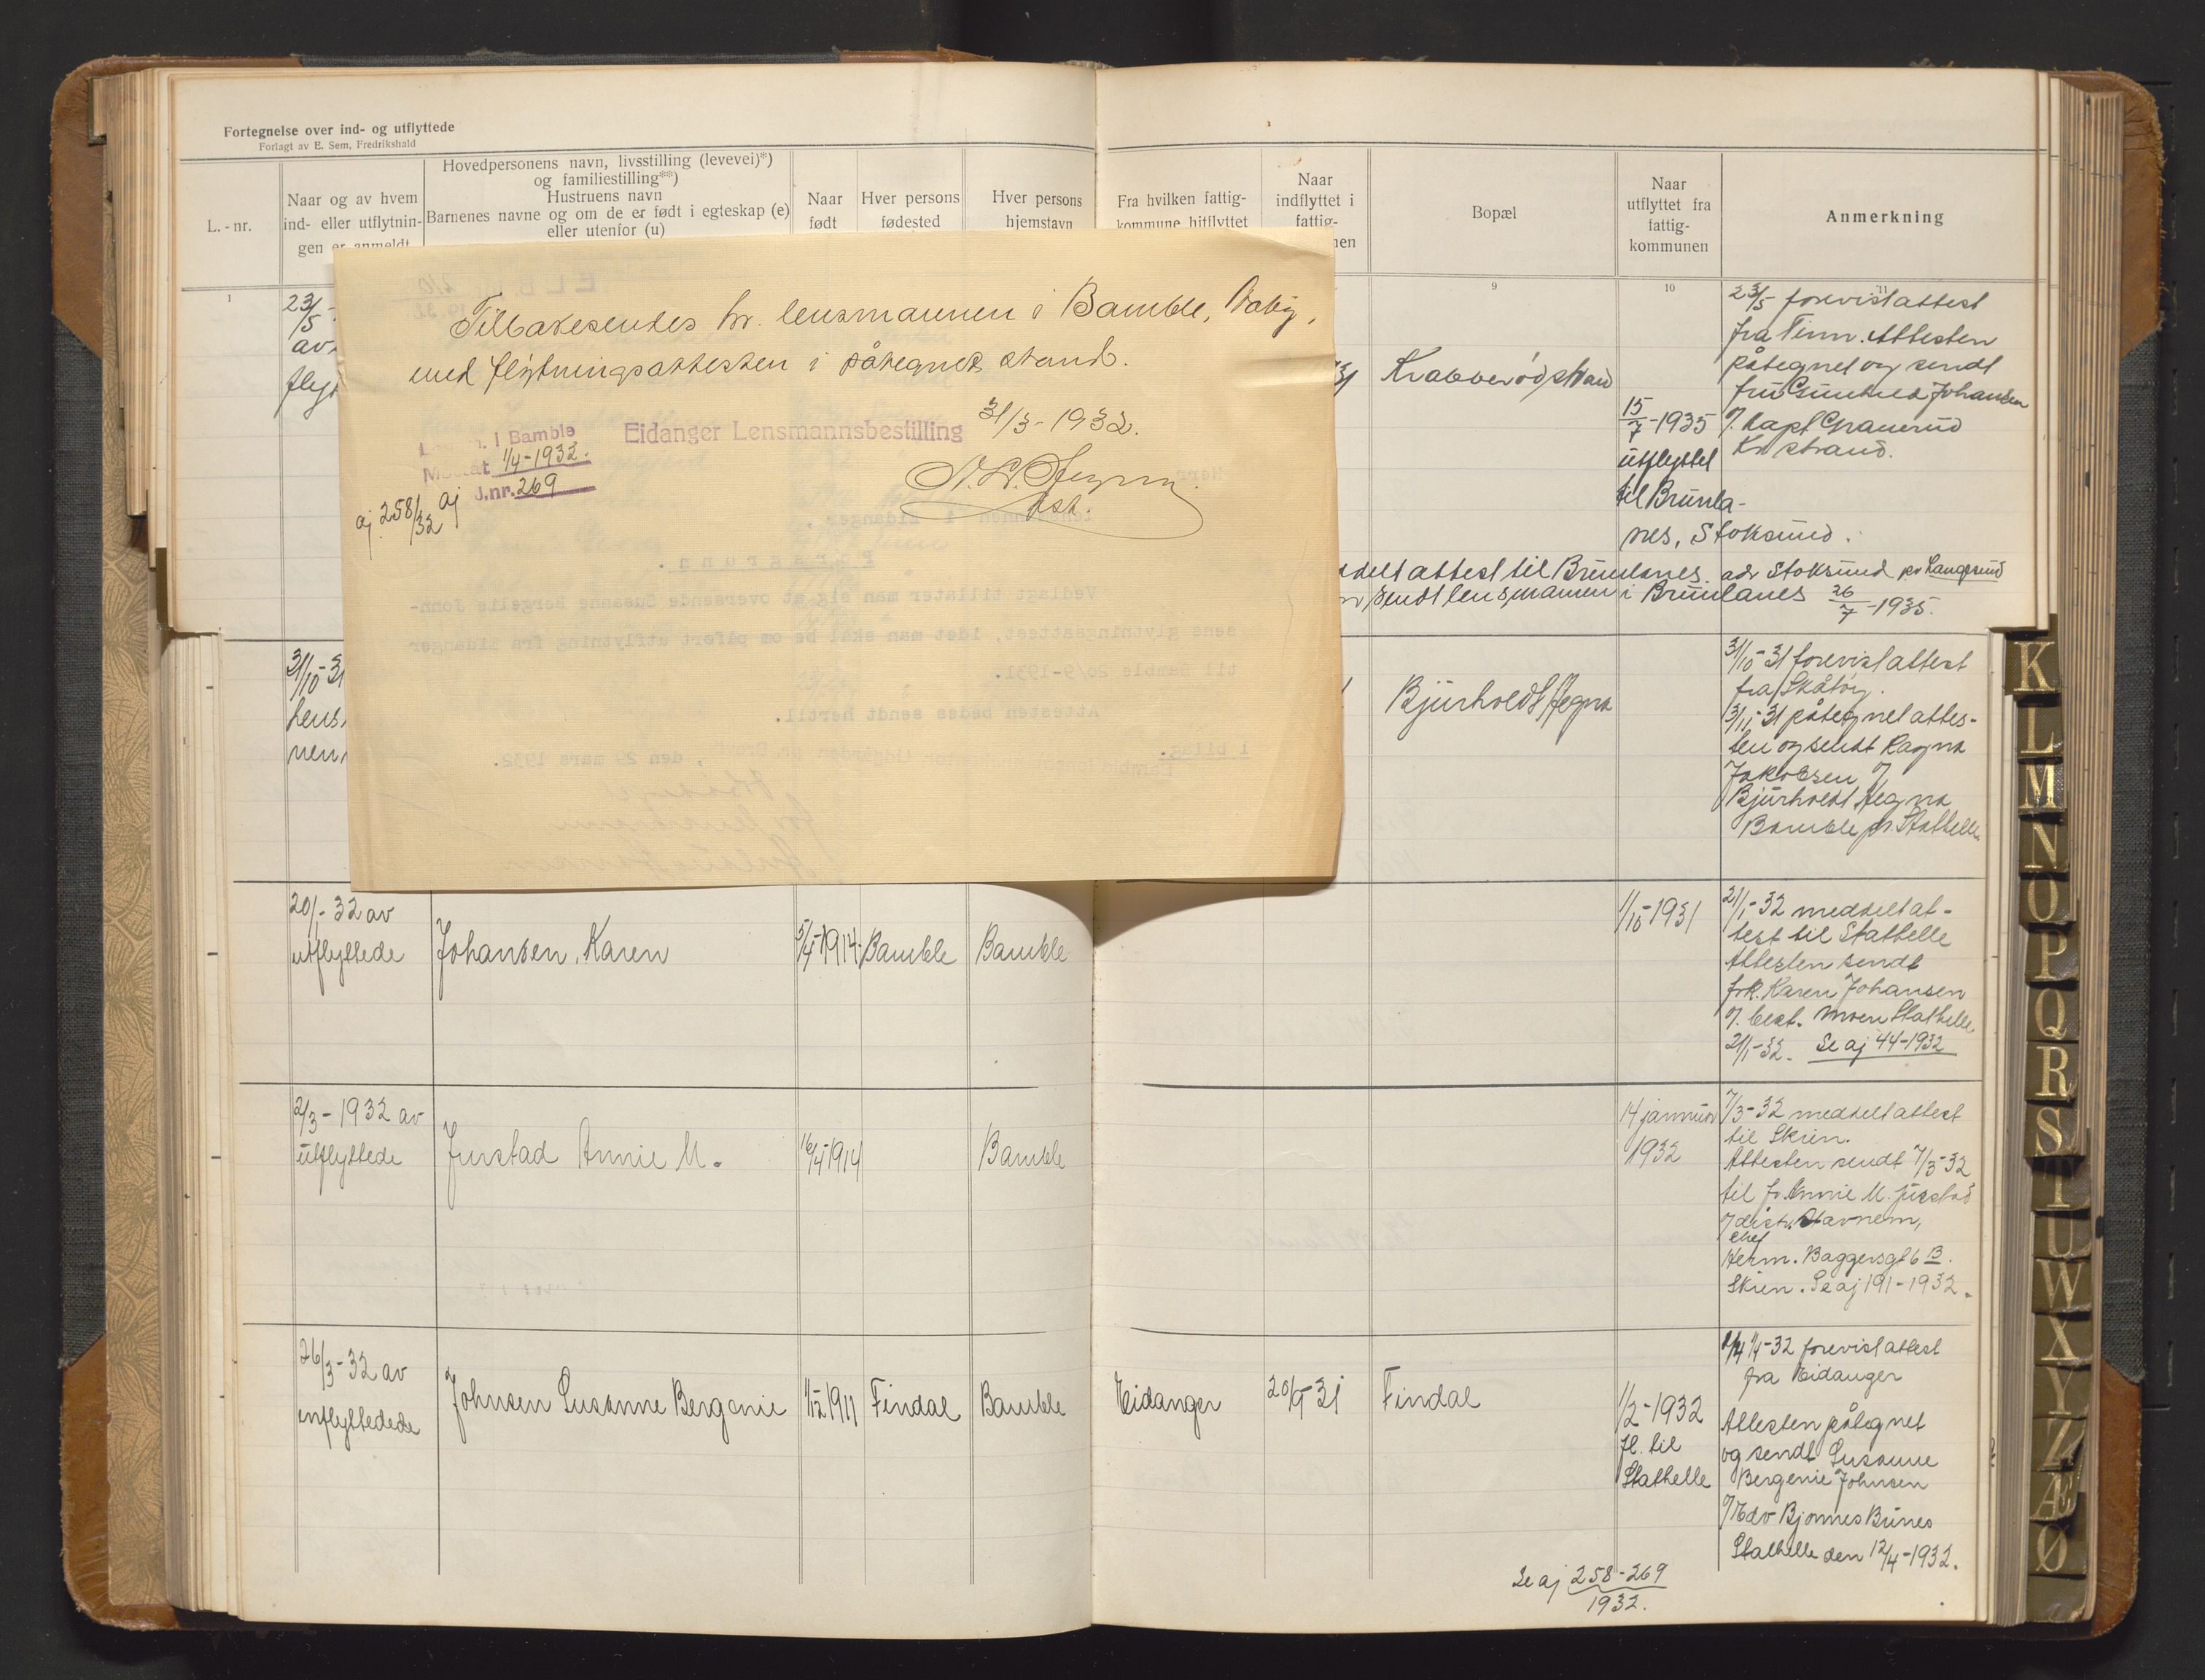 Fortegnelse over ind- og utflyttede
Forlagt av E. Sem, Fredrikshald
L.-nr.
Naar og av hvem
ind- eller utflytnin-
gen er anmeldt
Hovedpersonens navn, livsstilling (levevei)*)
og familiestilling**)
Hustruens navn
Barnenes navne og om de er født i egteskap (e)
eller utenfor (u)
Naar
født
Hver persons
fødested
Hver persons
hjemstavn
Fra hvilken fattig-
kommune hitflyttet
Naar
indflyttet i
fattig-
Bopæl
Naar
utflyttet fra
fattig-
kommunen
Anmerkning
1
9
10
11
23/5
av
flyt
Tilbakesendes hr. lensmannen i Bamble,
med flytningsattesten i påtegnet stand.
Eidanger Lensmannsbestilling 31/3-1932.
i Bamble
1/4-1932.
J.nr. 269
aj. 258/32 aj
Herr
lensmannen i Eidanger,
Porsgrunn.
Vedlagt tillater man sig at oversende Susanne Bergelie John-
sens flytningsattest, idet man skal be om påført utflytning fra Eidanger
til Bamble 20/9-1931.
Attesten bedes sendt hertil.
1 bilag.
, den 29 mars 1932.
31 Krabberødstrand
15/7-1935
utflyttet
til Brunla-
nes, Stoksund.
23/5 forevist attest
fra Tinn. Attesten
påtegnet og sendt
fru Gunhild Johansen
% Kapt Graverud
Kr strand.
delt attest til Brunlanes. adr Stoksund pr Langesund
sendt lensmannen i Brunlanes 26/7-1935.
31/10-31
lens
nen
Bjurholdt Hegna
31/10-31 forevist attest
fra Skåtøy.
3/11-31 påtegnet attes-
ten og sendt Ragna
Jakobsen %
Bjurholdt Hegna
Bamble pr. Stathelle
20/1-32 av
utflyttede
Johansen, Karen
5/4-1914 Bamble Bamble
1/10-1931
21/1-32 meddelt at-
test til Stathelle
Attesten sendt
frk. Karen Johansen
%. best. Moen Stathelle
21/1-32. Se aj 44-1932
2/3-1932 av
utflyttede
Jurstad Annie M.
16/4-1914
Bamble
14 januar
1932
7/3-32 meddelt attest
til Skien.
Attesten sendt 7/3-32
til fr Annie M. Jurstad
% distr. Stavnem,
chef
Herm. Baggersgt 6 B.
Skien. Se aj 191-1932.
26/3-32 av
innflyttedede
Johnsen Susanne Bergenie
1/12 1911 Findal Bamble
Eidanger 20/9-31 Findal
1/2-1932
fl. til
Stathelle
1/4-32 forevist attest
fra Eidanger
Attesten påtegnet
og sendt Susanne
Bergenie Johnsen
% Edv Bjønnes Bunes
Stathelle den 12/4-1932.
Se aj 258-269
1932.
K
L
M
N
O
P
Q
R
S
T
U
W
X
Y
Z
Æ
Ø